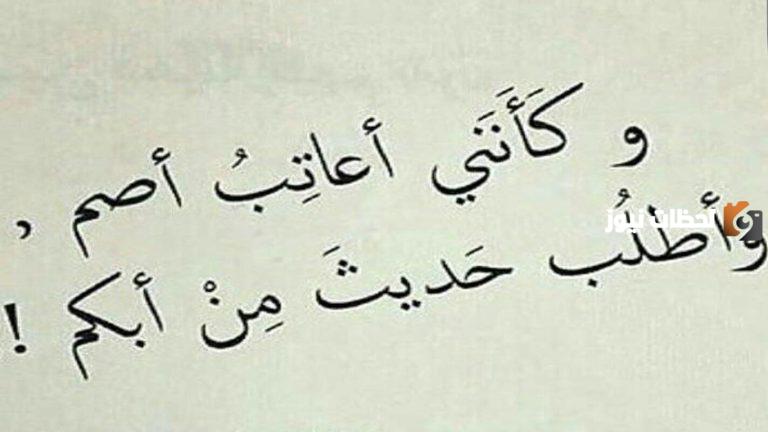 و كَأَنَني أعاتِبُ أصم ,
لحظات نيوز
وأطلُب حَديثَ مِنْ أبكم !